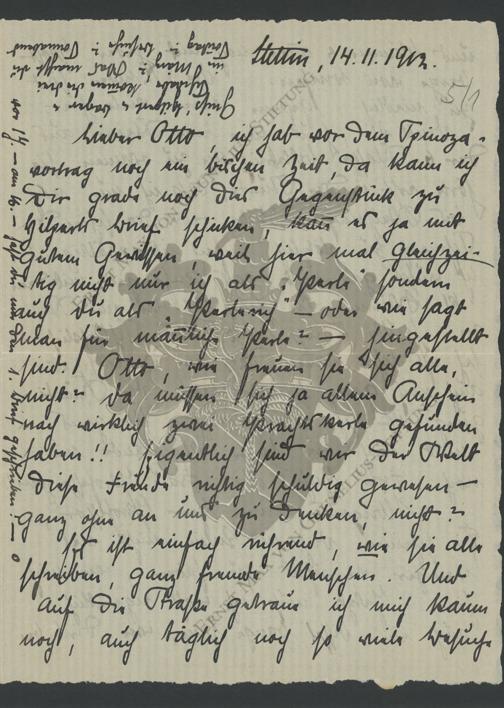 Stettin, 14.11.1912.
5/1
Lieber Otto, ich hab vor dem Spinoza-
vortrag noch ein bischen Zeit, da kann ich
Dir grade noch das Gegenstück zu
Hilperts Brief schicken, kann es ja mit
gutem Gewissen, weil hier mal gleichzei-
tig nicht nur ich als „Perle" sondern
auch du als „Perlerich" – oder wie sagt
man für männliche Perle? – hingestellt
sind. Otto, wie freuen sie sich alle,
nicht? Da müssen sich ja allem Anschein
nach wirklich zwei Prachtskerle gefunden
haben!! Eigentlich sind wir der Welt
diese Freude richtig schuldig gewesen –
ganz ohne an uns zu denken, nicht?
Es ist einfach rührend, wie sie alle
schreiben, ganz fremde Menschen. Und
auf die Straße getraue ich mich kaum
noch, auch täglich noch so viele Besuche
ERNST MEYER
CORNELIUS STIFTUNG